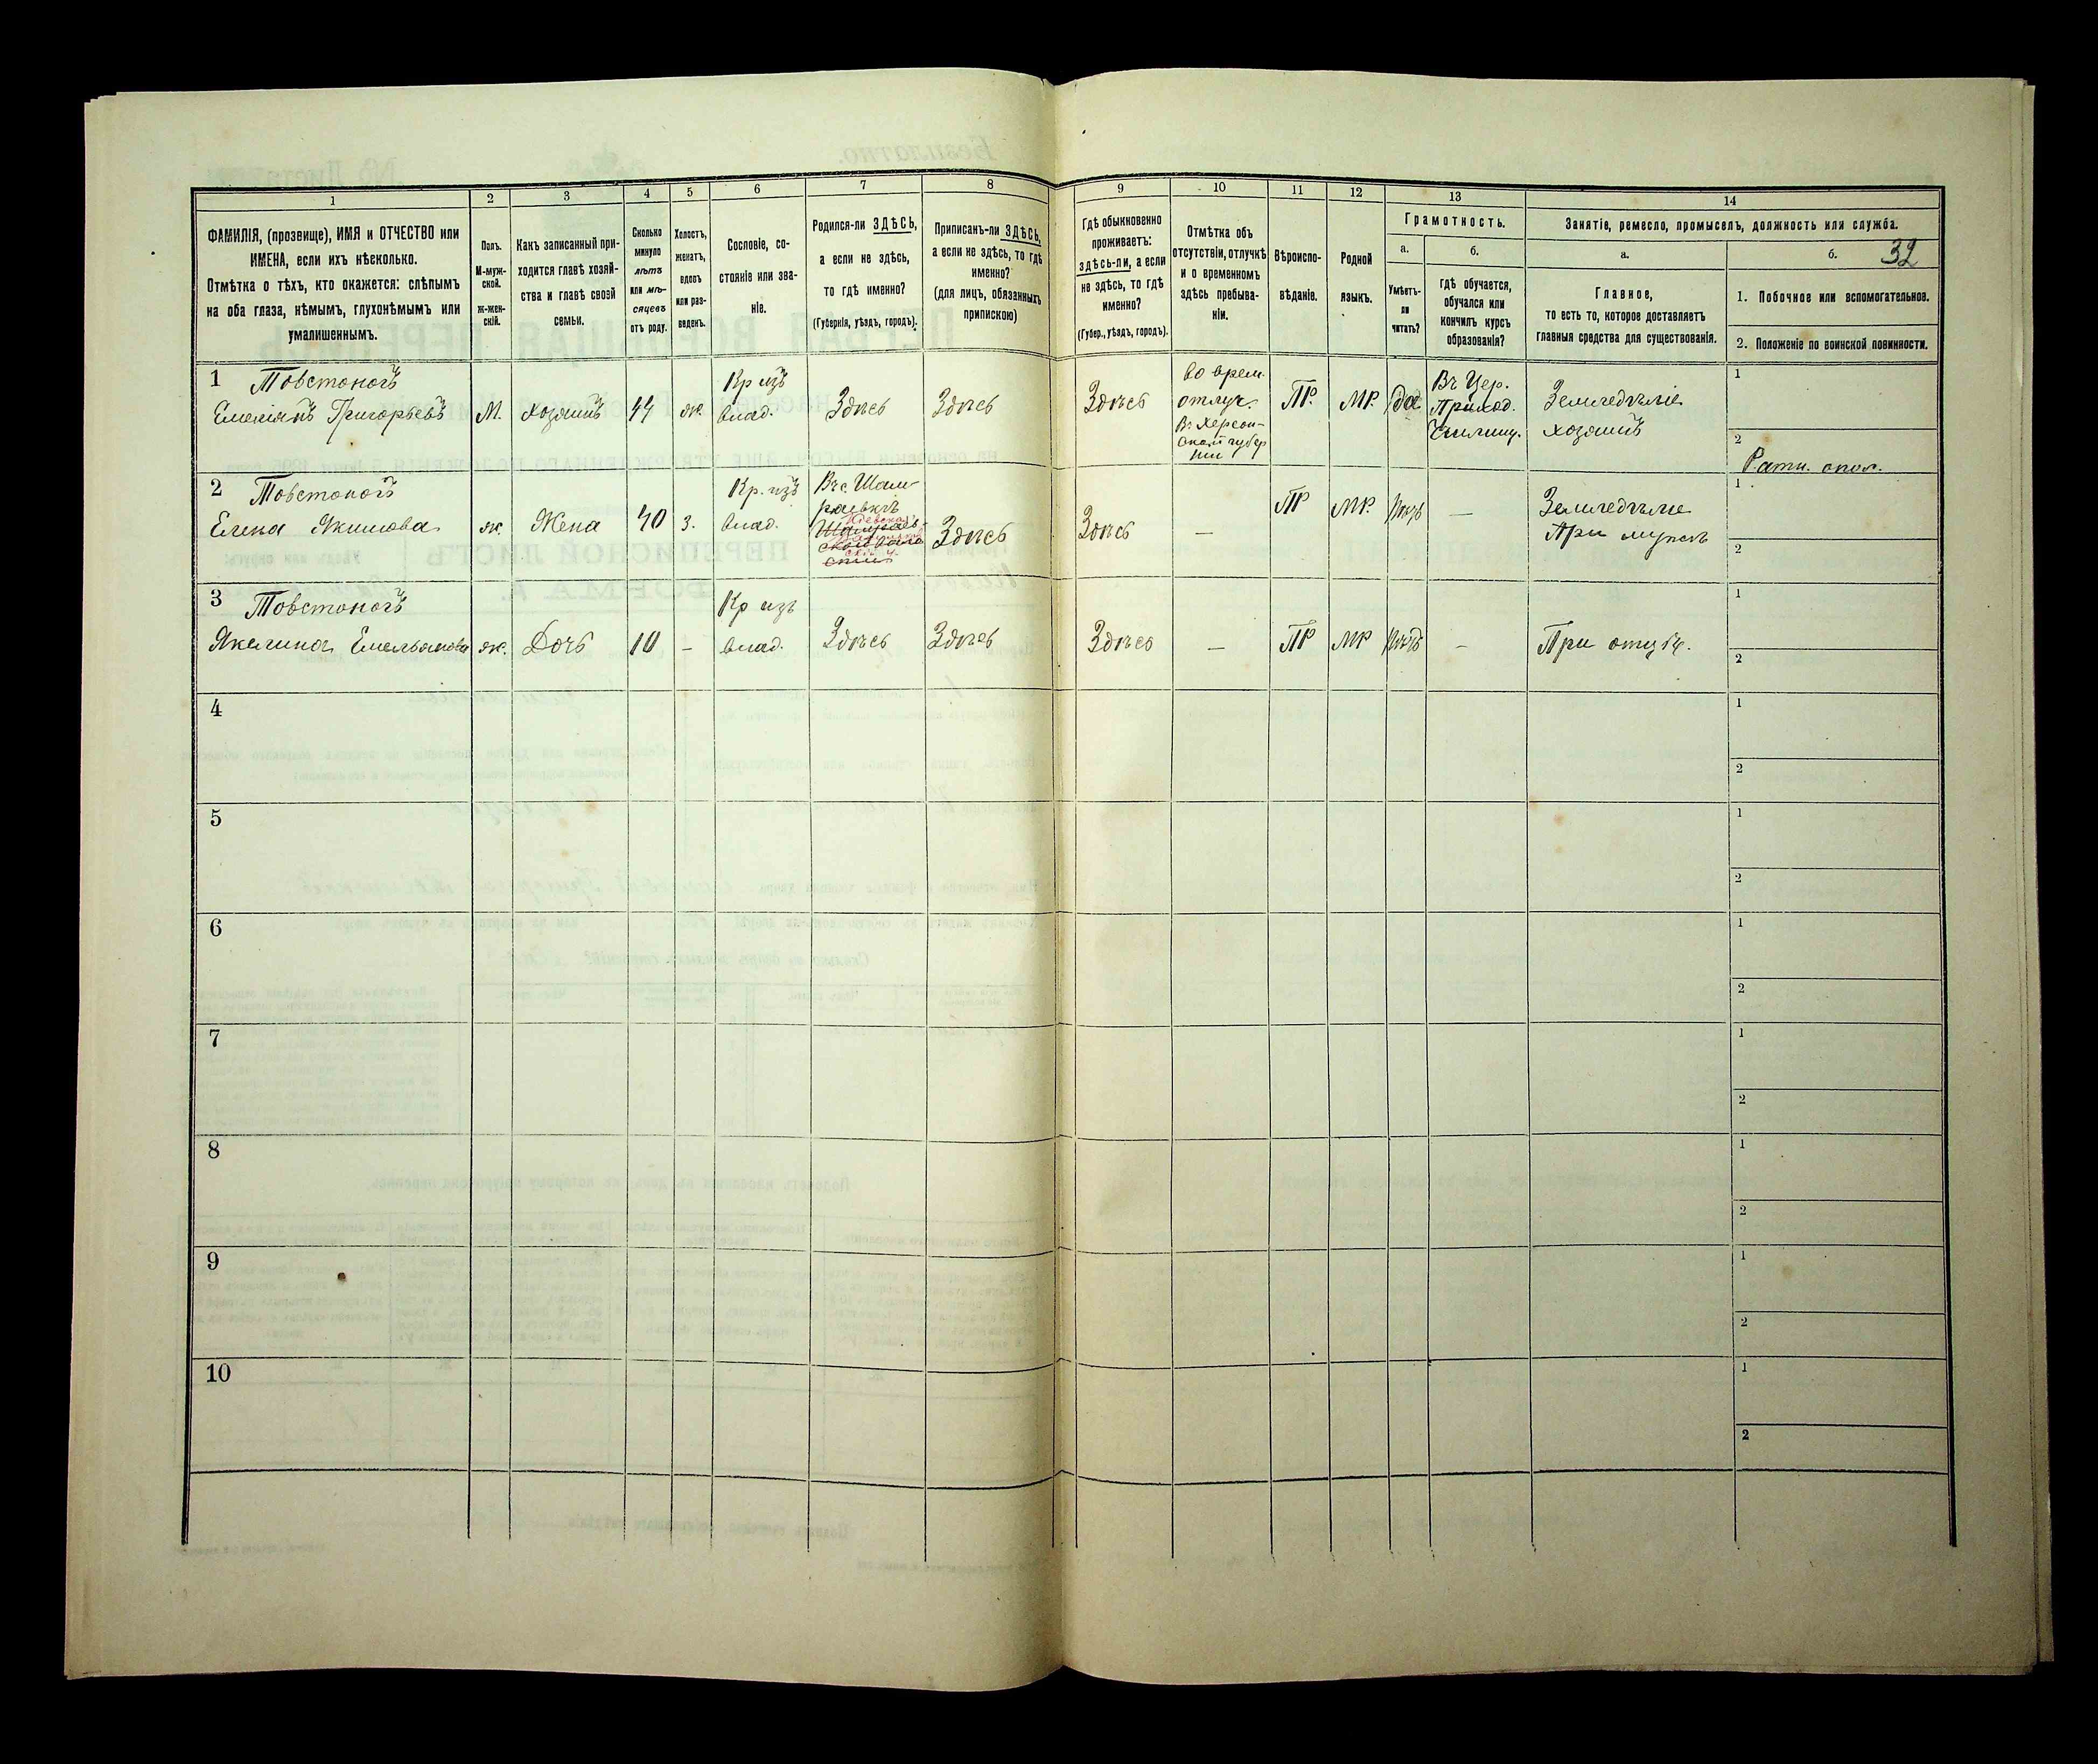 32
1
ФАМИЛІЯ, (прозвище), ИМЯ и ОТЧЕСТВО или
ИМЕНА, если ихъ нѣсколько.
Отмѣтка о тѣхъ, кто окажется: слѣпымъ
на оба глаза, нѣмымъ, глухонѣмымъ или
умалишеннымъ.
2
Полъ.
М-муж-
ской.
Ж-жен-
скій.
3
Какъ записанный при-
ходится главѣ хозяй-
ства и главѣ своей
семьи.
4
Сколько
минуло
лѣтъ
или мѣ-
сяцевъ
отъ роду.
5
Холостъ,
женатъ,
вдовъ
или раз-
веденъ.
6
Сословіе, со-
стояніе или зва-
ніе.
7
Родился-ли ЗДѢСЬ,
а если не здѣсь,
то гдѣ именно?
(Губернія, уѣздъ, городъ).
8
Приписанъ-ли ЗДѢСЬ,
а если не здѣсь, то гдѣ
именно?
(для лицъ, обязанныхъ
припискою)
9
Гдѣ обыкновенно
проживаетъ:
здѣсь-ли, а если
не здѣсь, то гдѣ
именно?
(Губер., уѣздъ, городъ).
10
Отмѣтка объ
отсутствіи, отлучкѣ
и о временномъ
здѣсь пребыва-
ніи.
11
Вѣроиспо-
вѣданіе.
12
Родной
языкъ.
13
Грамотность.
а.
Умѣетъ-
ли
читать?
б.
гдѣ обучается,
обучался или
кончилъ курсъ
образованія?
14
Занятіе, ремесло, промыселъ, должность или служба.
а.
Главное,
то есть то, которое доставляетъ
главныя средства для существованія.
б.
1. Побочное или вспомогательное.
2. Положеніе по воинской повинности.
1
Товстоногъ
Емеліянъ Григорьевъ
М.
хозяинъ
44
ж.
Кр изъ
влад.
Здѣсь
Здѣсь
Здѣсь
во врем.
отлуч.
Въ Херсон-
ской губер
ніи
ПР.
МР.
да
Въ Цер.
Приход.
Училищ.
Земледѣліе
хозяинъ
1
2
Ратн. опол.
2
Товстоногъ
Елена Якимова
ж.
Жена
40
З.
Кр. изъ
влад.
Въ с. Шам-
раевкѣ
Здѣсь
Здѣсь
—
ПР
МР.
нѣтъ
—
Земледѣліе
При мужѣ
1
2
3
Товстоногъ
Акилина Емельянова
ж.
Дочь
10
-
Кр изъ
влад.
Здѣсь
Здѣсь
Здѣсь
—
ПР
МР
нѣтъ
-
При отцѣ.
1
2
4
1
2
5
1
2
6
1
2
7
1
2
8
1
2
9
1
2
10
1
2